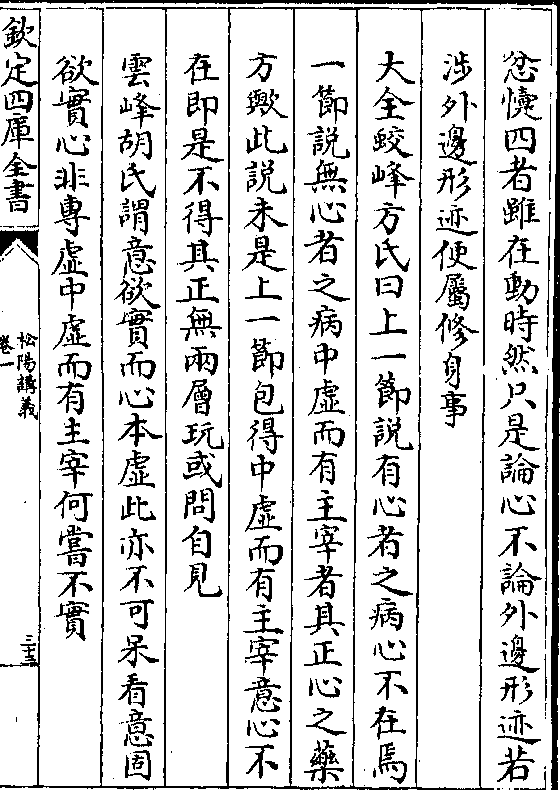 忿懥四者雖在動時然只是論心不論外邊形迹若
涉外邊形迹便屬修身事
大全蛟峰方氏曰上一節説有心者之病心不在焉
一節説無心者之病中虚而有主宰者其正心之藥
方歟此説未是上一節包得中虚而有主宰意心不
在即是不得其正無兩層玩或問自見
雲峰胡氏謂意欲實而心本虚此亦不可呆看意固
欲實心非專虚中虚而有主宰何嘗不實
欽定四庫全書
松陽講義
卷一
三十三